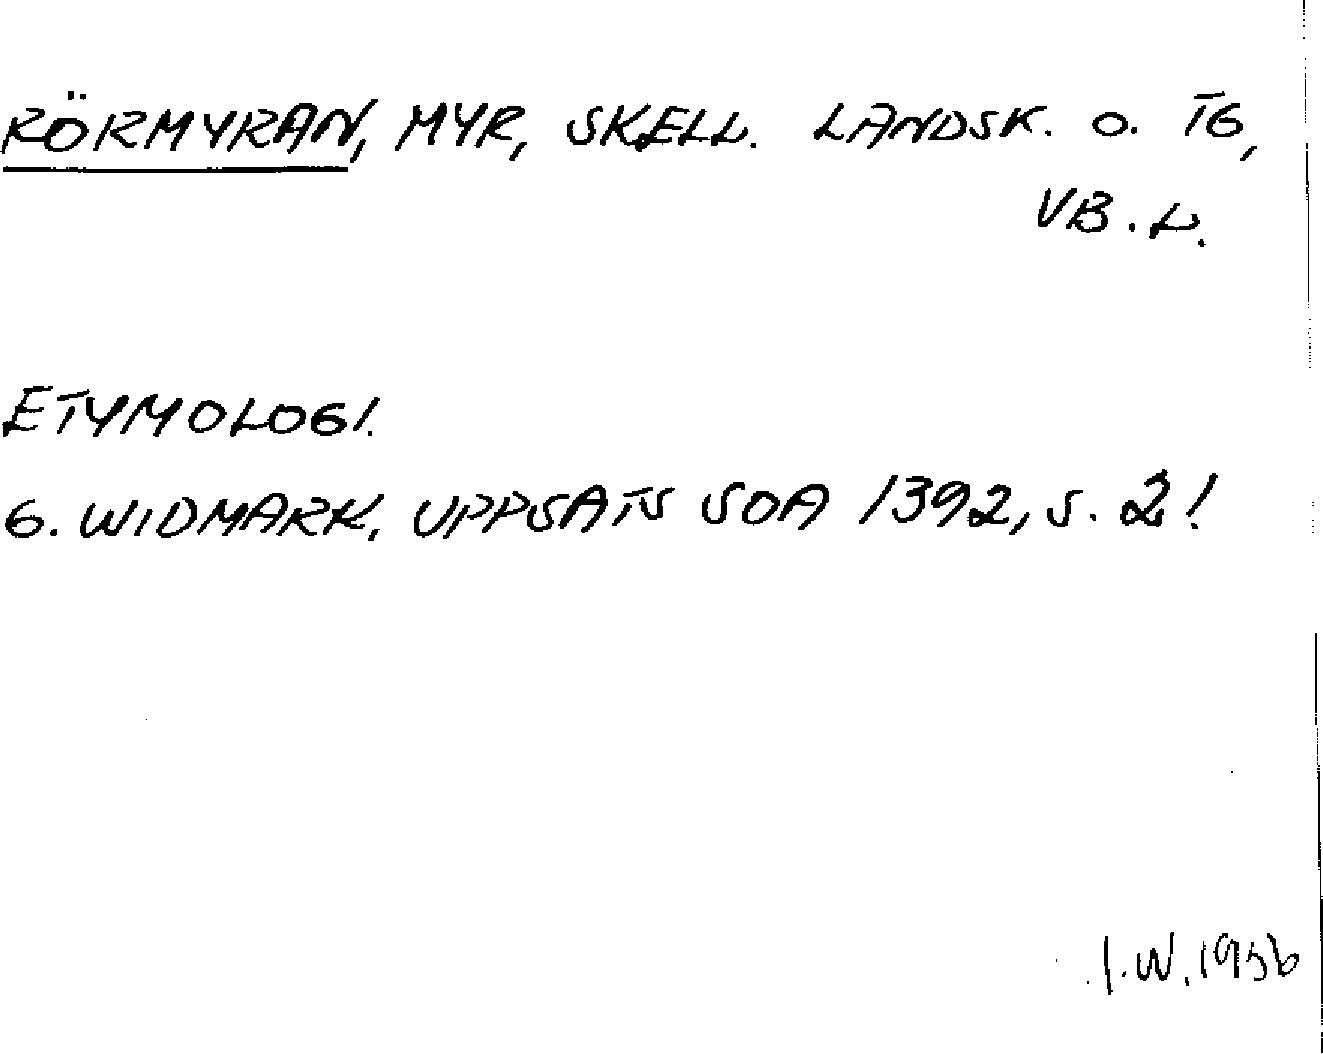 RÖRMYRAN, MYR, SKELL. LANDSK. O. TG,
VB. L.
ETYMOLOGI.
G. WIDMARK, UPPSATS SOA 1392, S. 2!
I.W. 1956